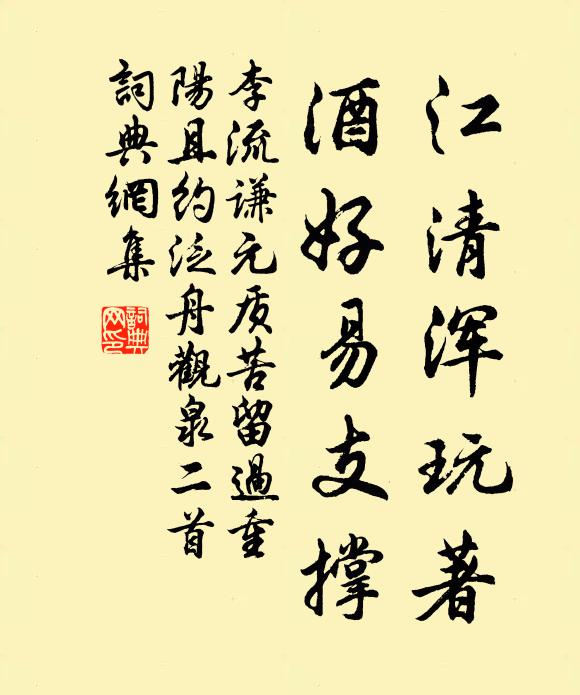 江清浑玩著
酒好易支撑
李流谦元质苦留過重
陽且约泛舟觀泉二首
詞典網集
詞典
网印